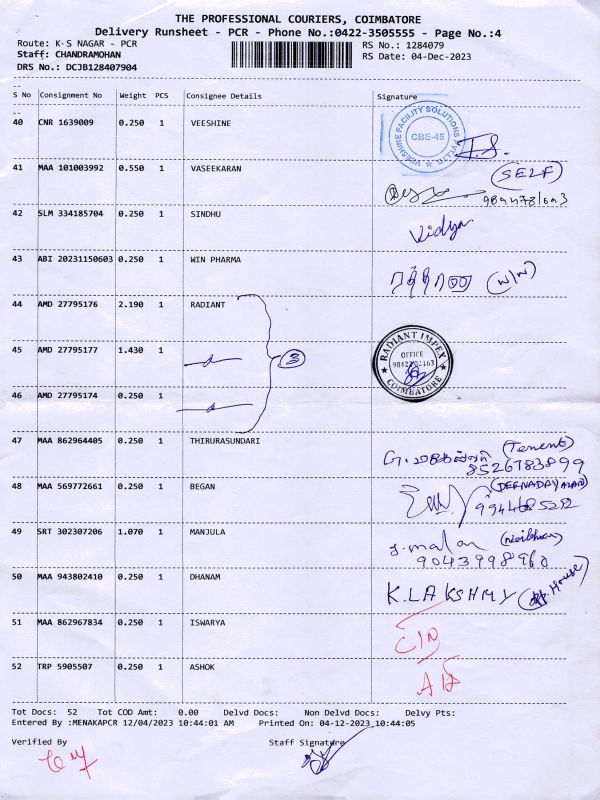 THE PROFESSIONAL COURIERS, COIMBATORE
Delivery Runsheet - PCR - Phone No.:0422-3505555 - Page No.:4
Route: K-S NAGAR - PCR
RS No.: 1284079
Staff: CHANDRAMOHAN
RS Date: 04-Dec-2023
DRS No.: DCJB128407904
S No Consignment No Weight PCS Consignee Details Signature
40 CNR 1639009 0.250 1 VEESHINE
VEESHINE FACILITY SOLUTIONS PVT.LTD.
CBE-45
41 MAA 101003992 0.550 1 VASEEKARAN
(SELF)
42 SLM 334185704 0.250 1 SINDHU
Vidya
43 ABI 20231150603 0.250 1 WIN PHARMA
(W/W)
44 AMD 27795176 2.190 1 RADIANT
45 AMD 27795177 1.430 1
3
RADIANT IMPEX
OFFICE
COIMBATORE
46 AMD 27795174 0.250 1
47 MAA 862964405 0.250 1 THIRURASUNDARI
(Tenent)
8526783899
48 MAA 569772661 0.250 1 BEGAN
(DEENADAYALAN)
49 SRT 302307206 1.070 1 MANJULA
50 MAA 943802410 0.250 1 DHANAM
K.LAKSHMY
House)
51 MAA 862967834 0.250 1 ISWARYA
52 TRP 5905507 0.250 1 ASHOK
Tot Docs: 52 Tot COD Amt: 0.00 Delvd Docs: Non Delvd Docs: Delvy Pts:
Entered By :MENAKAPCR 12/04/2023 10:44:01 AM Printed On: 04-12-2023 10:44:05
Verified By Staff Signature